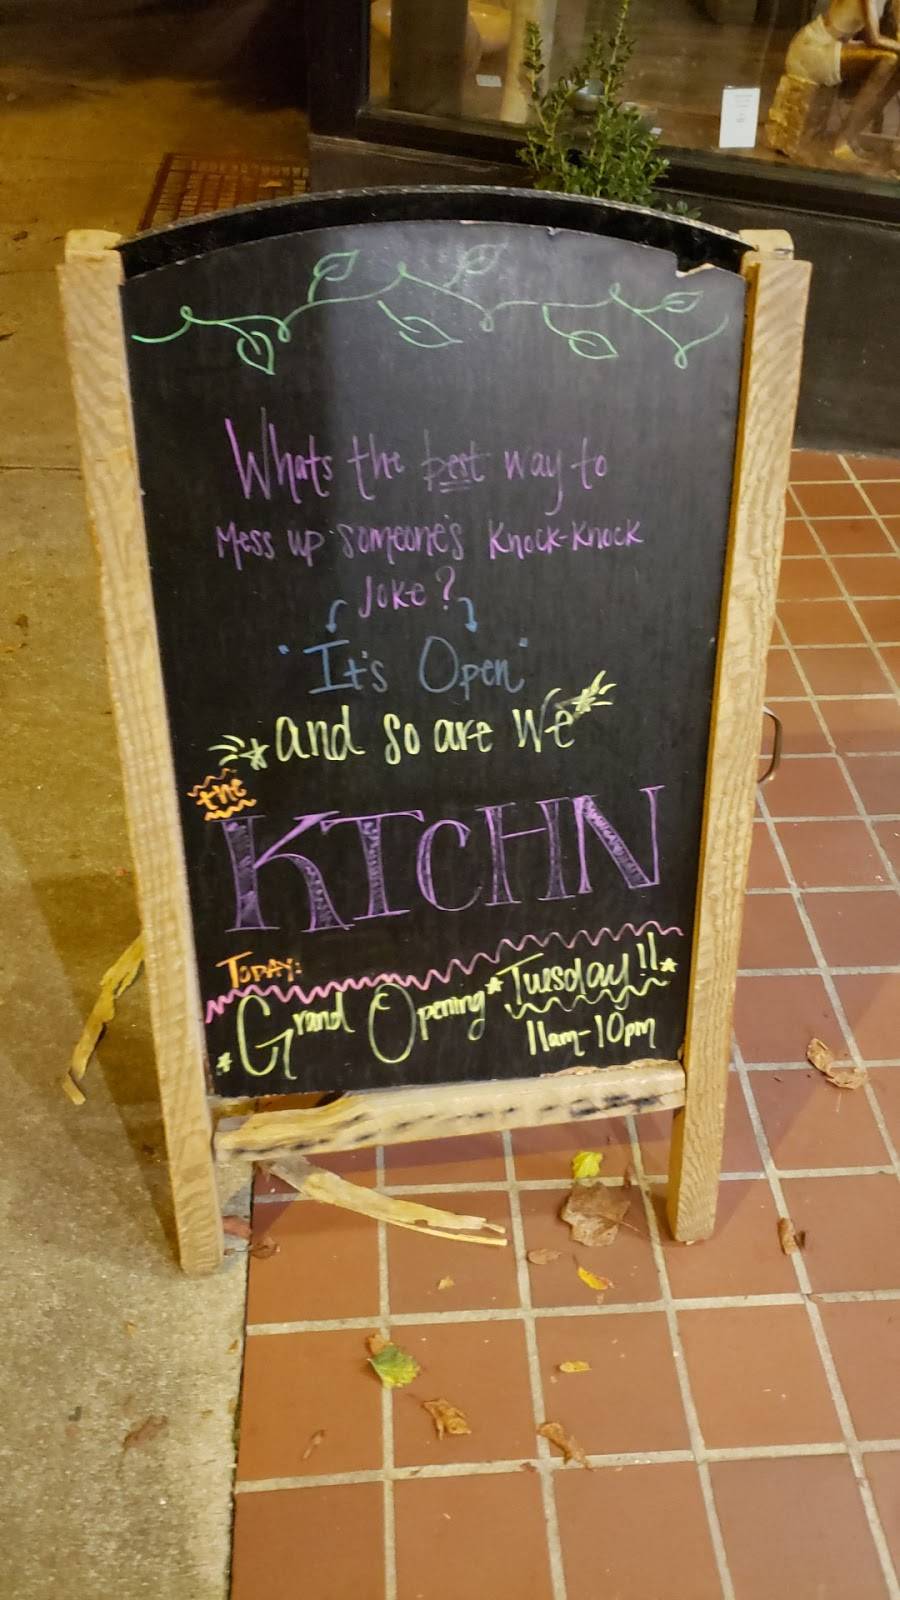 Whats the best way to
Mess up someone's Knock-Knock
Joke?
"It's Open"
and so are we
the
KTCHN
TODAY:
Grand Opening Tuesday!!
11am-10pm